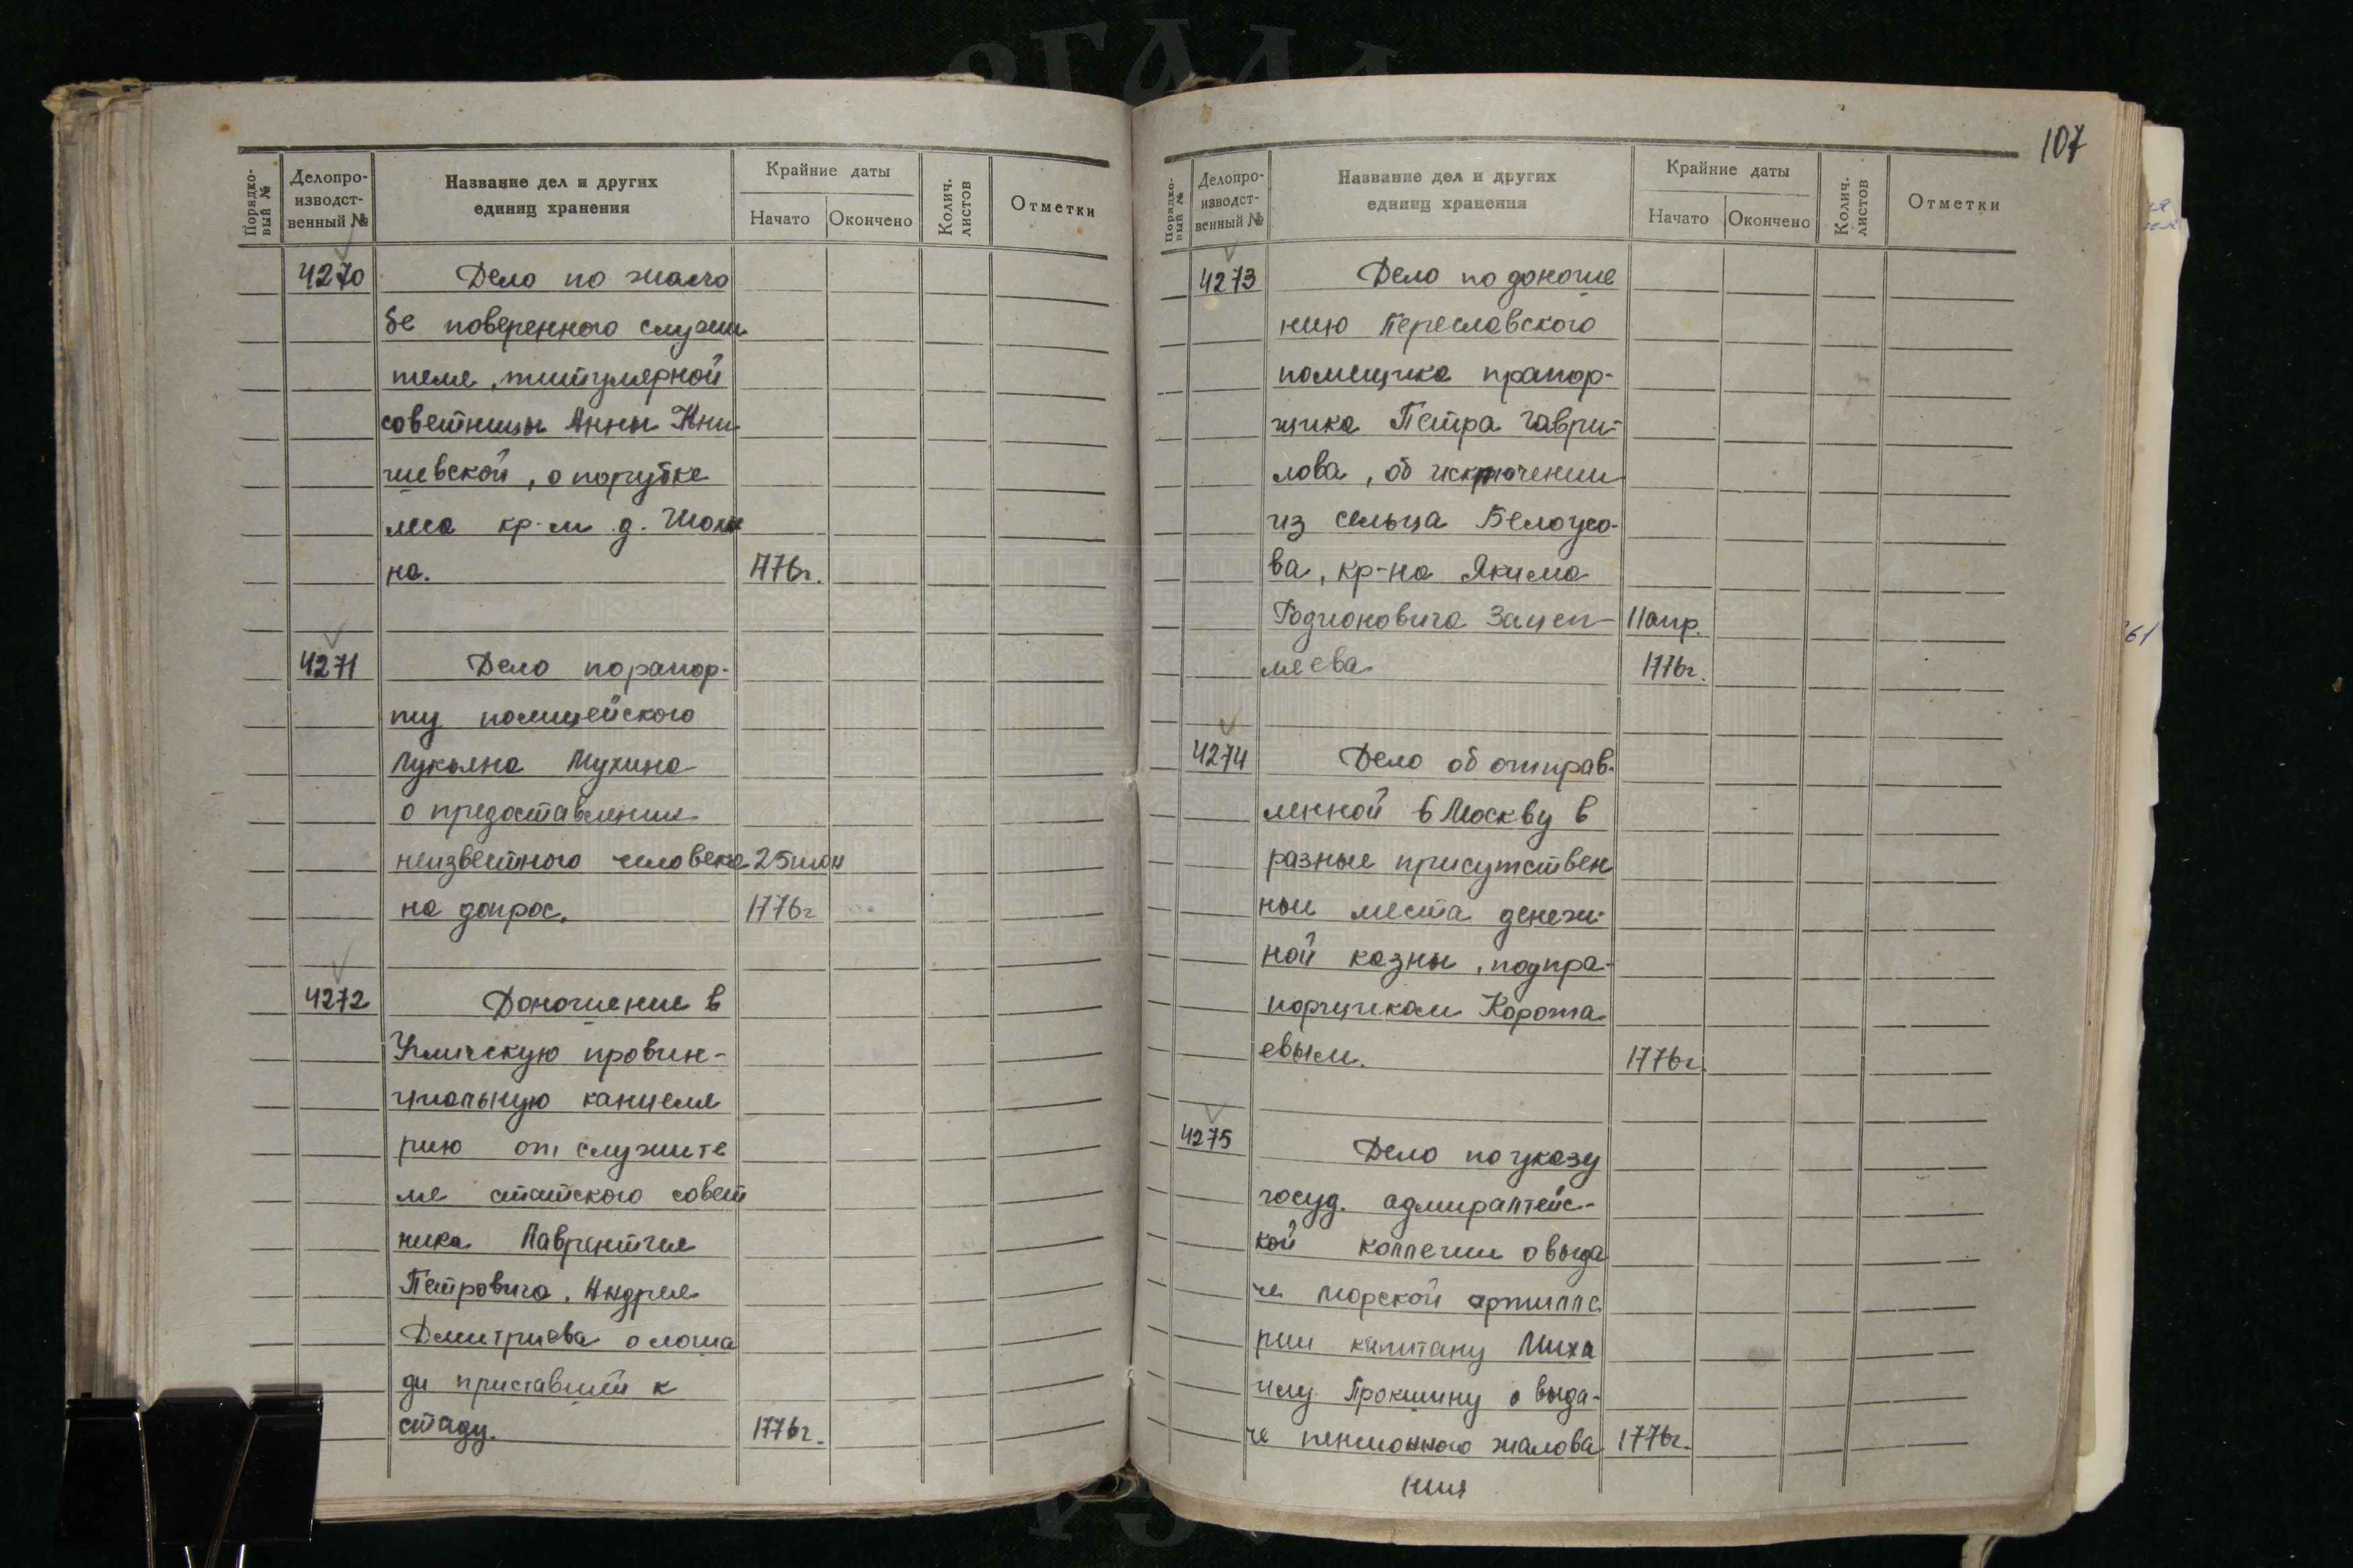 Порядко-
вый №
Делопро-
изводст-
венный №
Название дел и других
единиц хранения
Крайние даты
Начато
Окончено
Колич.
листов
Отметки
4270
Дело по жало
бе поверенного служи
теля, титулярной
советницы Анны Кни
шевской, о порубке
леса кр-ми д.
на.
1776г.
4271
Дело по рапор-
ту полицейского
Лукьяна Мухина
о предоставлении
неизвестного человека 25 июн
на допрос.
1776г
4272
Доношение в
Угличскую провин-
циальную канцеля
рию от служите
ля статского совет
ника Лаврентия
Петровича, Андрея
Дмитриева о лоша
ди приставшей к
стаду.
1776г.
107
Порядко-
вый №
Делопро-
изводст-
венный №
Название дел и других
единиц хранения
Крайние даты
Начато
Окончено
Колич.
листов
Отметки
4273
Дело по доноше
нию Переславского
помещика прапор-
щика Петра Гаври-
лова, об исключении
из сельца Белоусо-
ва, кр-на Якима
Родионовича Зацеп- 11 апр.
леева
1776г.
4274
Дело об отправ-
ленной в Москву в
разные присутствен
ные места денеж-
ной казны, подпра-
порщиком Корота
евым.
1776г.
4275
Дело по указу
госуд. адмиралтейс-
кой коллегии о выда
че морской артилле
рии капитану Миха
илу Прокшину о выда-
че пенсионного жалова 1776г.
ния